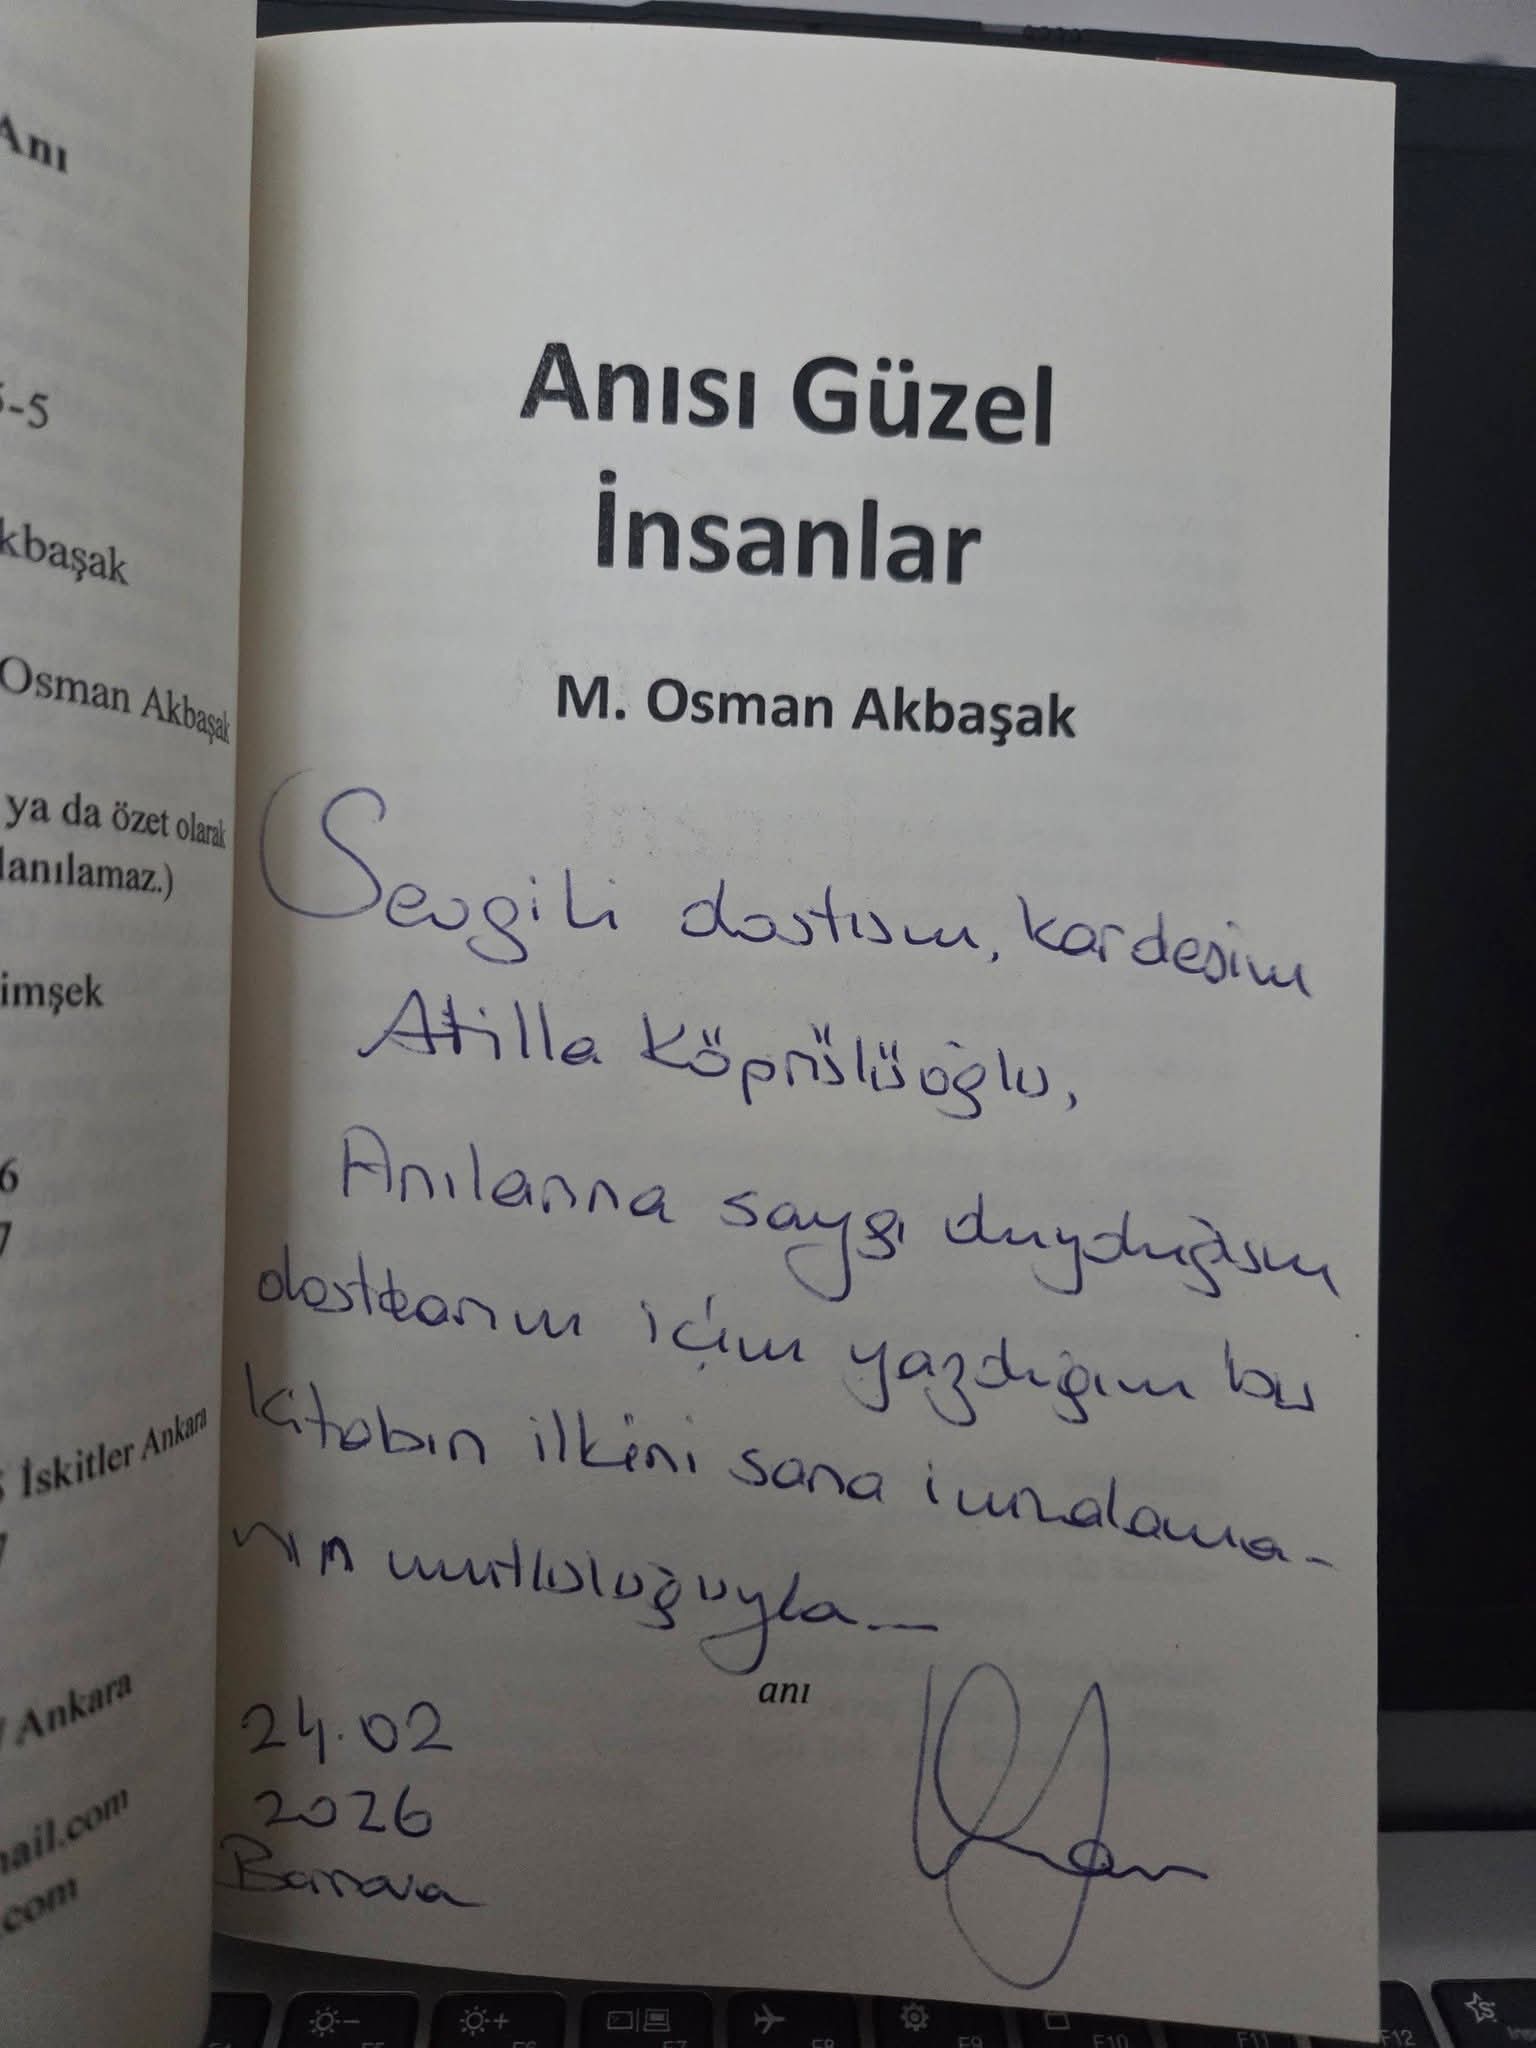 Anı
5-5
kbaşak
Osman Akbaşak
ya da özet olarak
lanılamaz.)
imşek
6
7
İskitler Ankara
7
/ Ankara
ail.com
.com
Anısı Güzel
İnsanlar
M. Osman Akbaşak
Sevgili dostum, kardeşim
Atilla Köprülüoğlu,
Anılarına saygı duyduğum
dostlarım için yazdığım bu
kitabın ilkini sana imzalama-
nın mutluluğuyla_
anı
24.02
2026
Bornova
F5
F6
F7
F8
F9
F10
F11
F12